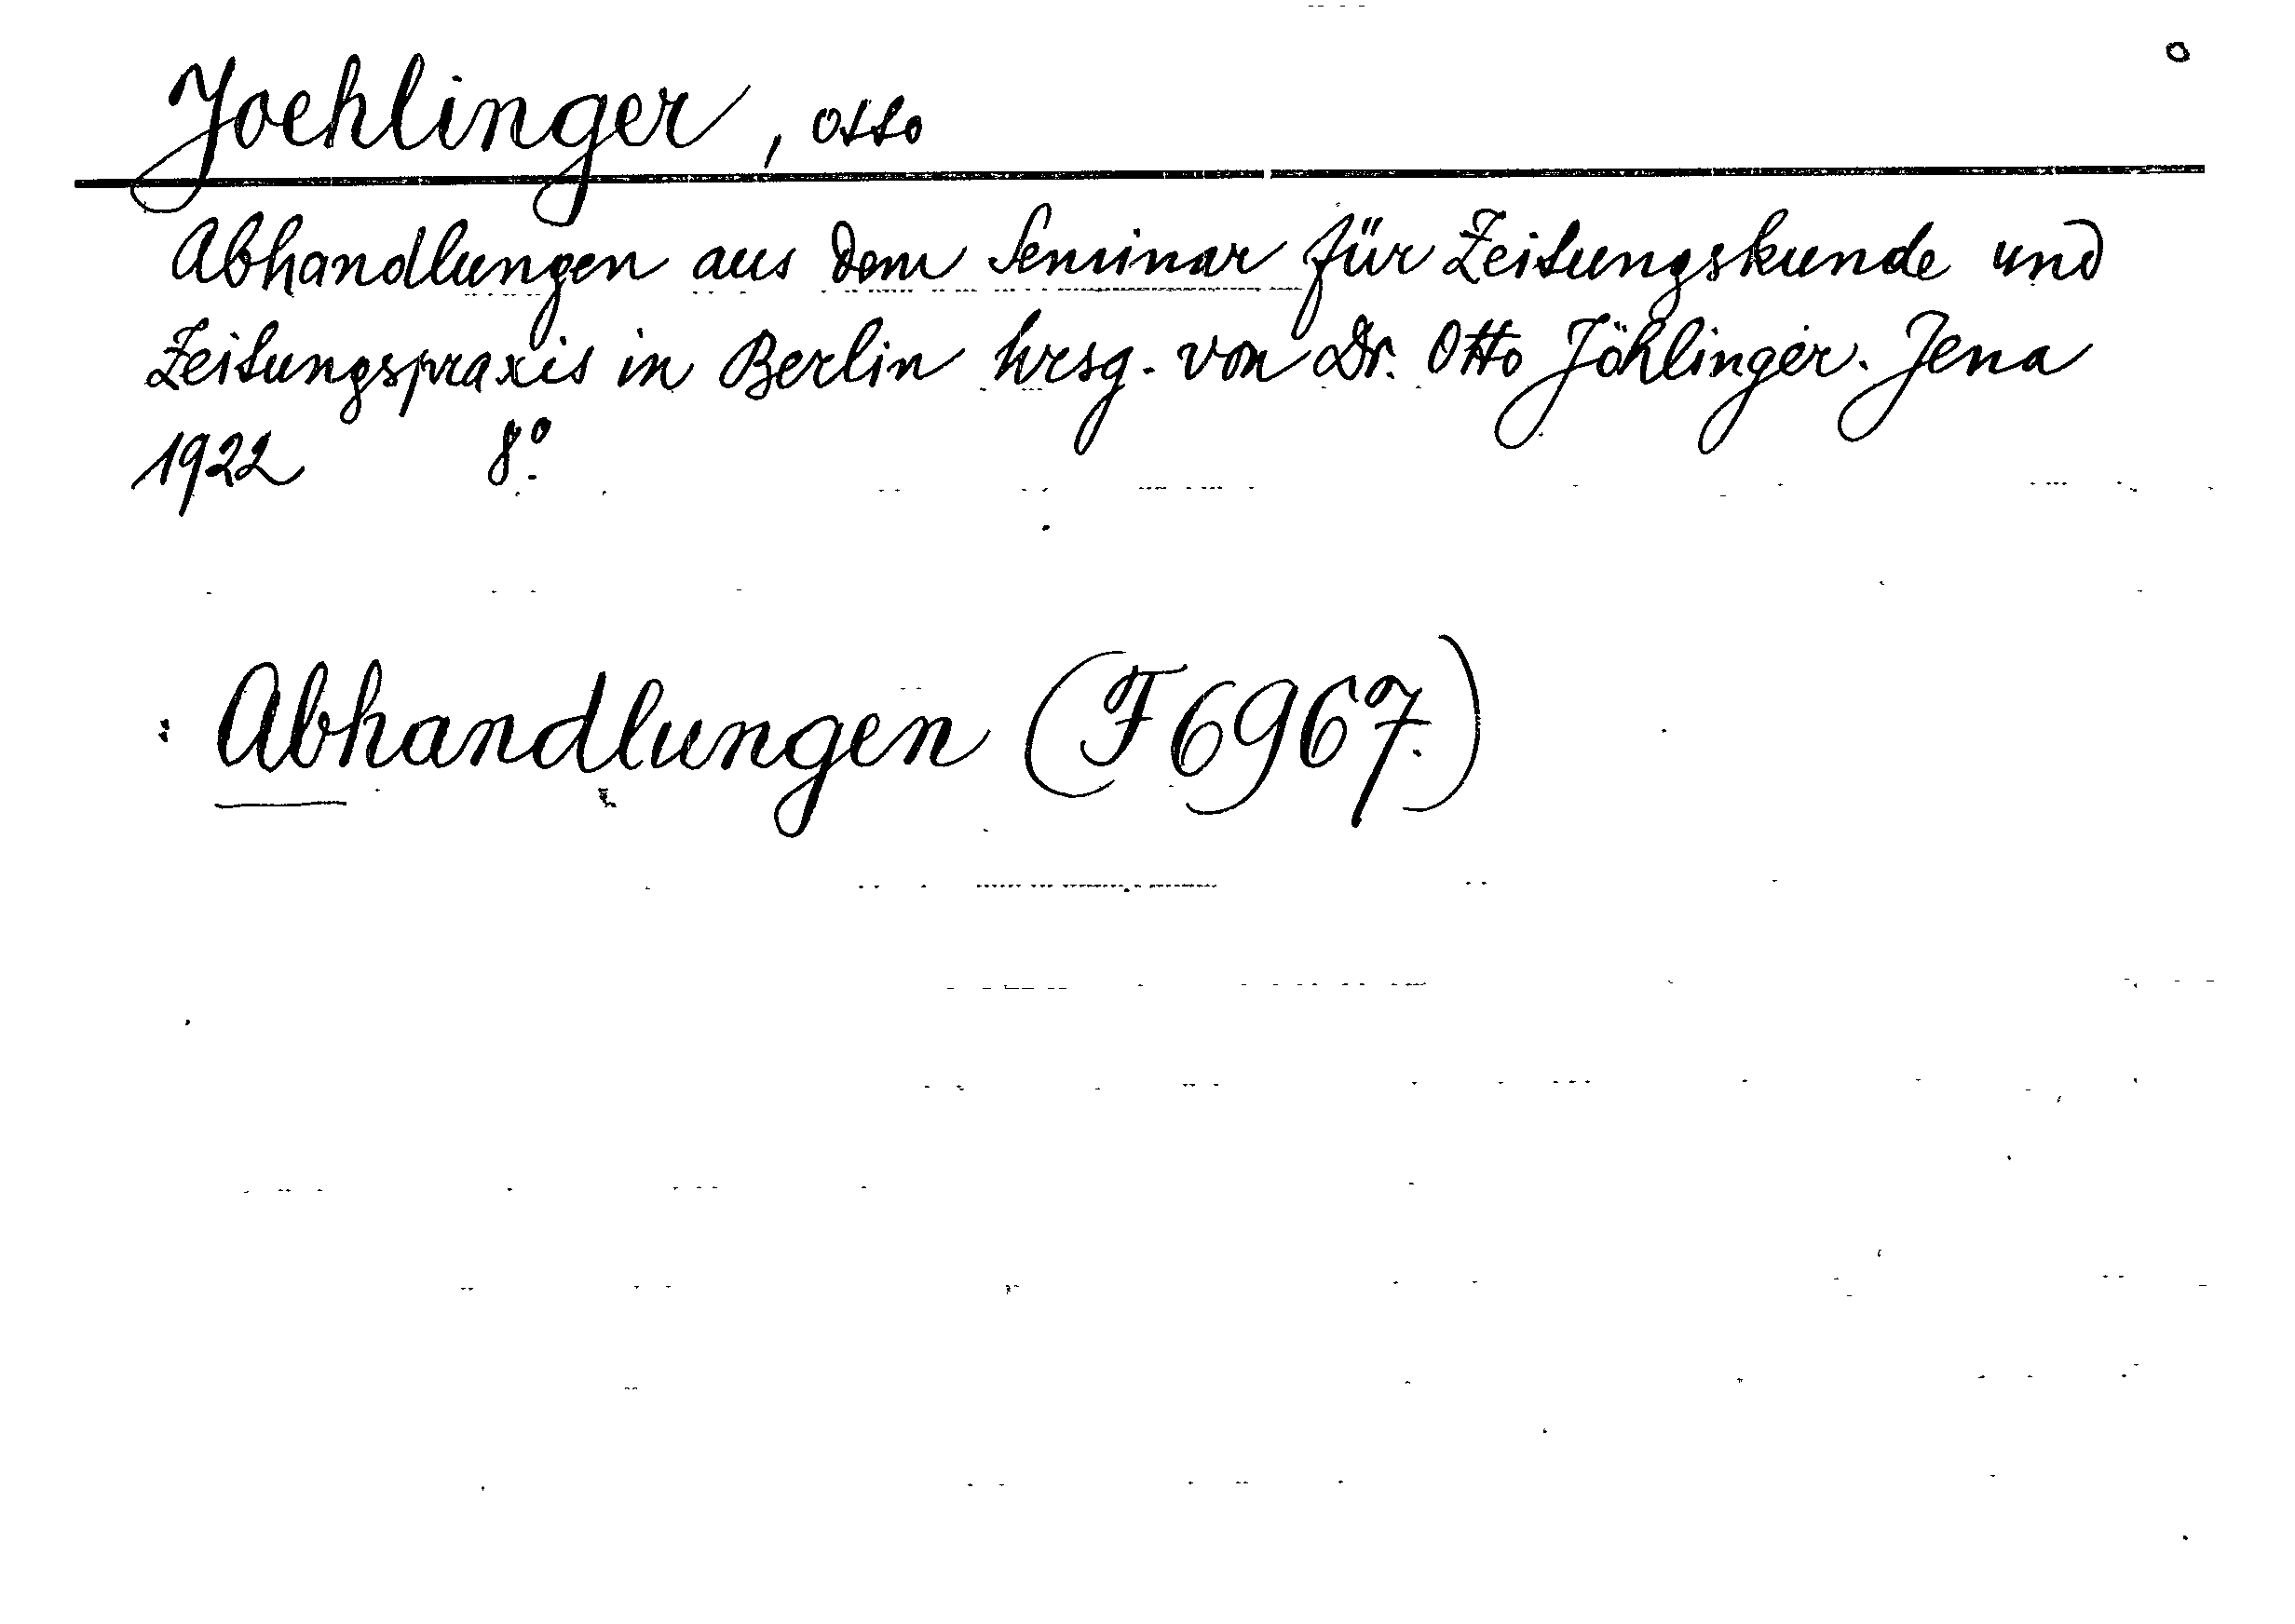 Joehlinger, Otto
Abhandlungen aus dem Seminar für Zeitungskunde und
Zeitungspraxis in Berlin hrsg. von Dr. Otto Jöhlinger. Jena
1922 8°.
: Abhandlungen (F 6967.)